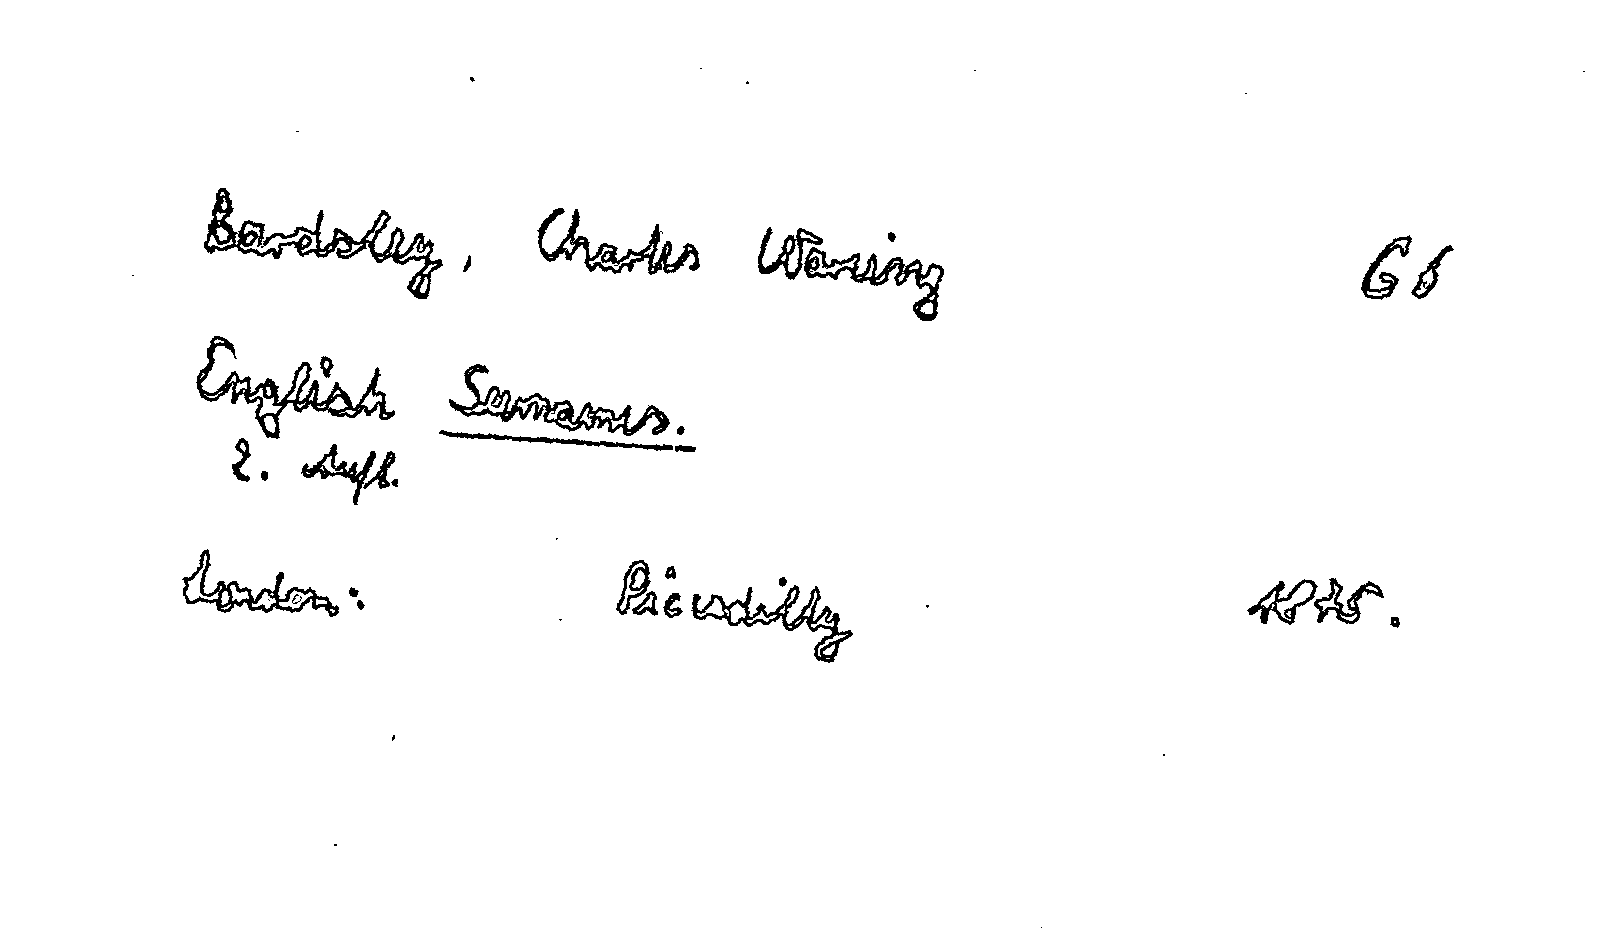 Bardsley, Charles Waring G6
English Surnames.
2. Aufl.
London: Piccadilly 1875.